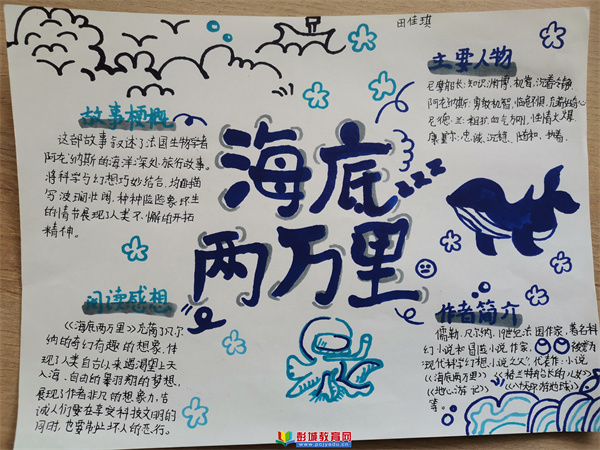 田佳琪
海底
两万里
故事梗概
这部故事叙述了法国生物学者
阿龙纳斯的海洋深处旅行故事。
将科学与幻想巧妙结合,均由描
写波澜壮阔,种种险些象环生
的情节展现了人类不懈的开拓
精神。
阅读感想
《海底两万里》充简了凡尔
纳的奇幻有趣的想象,体
现了人类自古以来渴望上天
入海,自由的翱翔的梦想,
展现了作者非凡的想象力,告
诫人们要在享受科技文明的
同时,也要制止坏人的恶行。
主要人物
尼摩船长:知识渊博,机智,沉着冷静
阿龙纳斯:勇敢机智,临危不惧,
尼德·兰:粗犷,血气方刚,性情火爆
康塞尔:忠诚,沉稳,随和,
作者简介
儒勒·凡尔纳,19世纪法国作家,著名科
幻小说和冒险小说作家,被誉为
“现代科学幻想小说之父”,代表作:小说
《海底两万里》《格兰特船长的儿女》
《地心游记》《八十天环游地球》
等。
彭城教育网
www.pcjyedu.cn